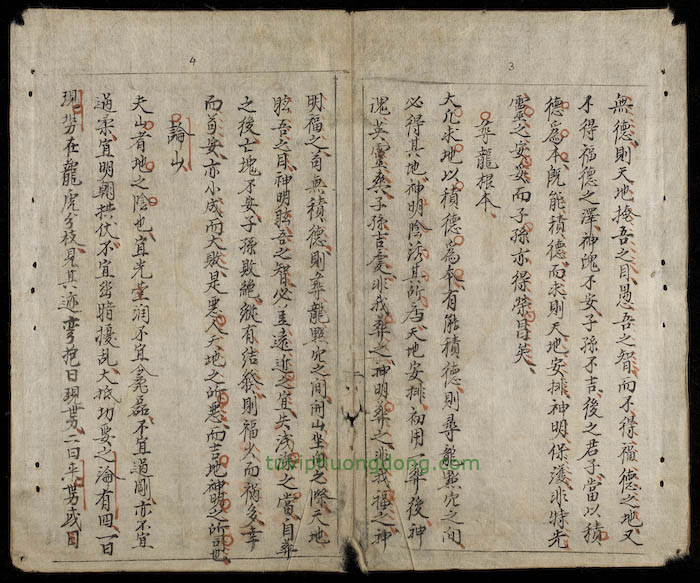 3
無德則天地掩吾之目愚吾之智而不得福德之地又
不得福德之澤神魄不安子孫不吉後之君子當以積
德為本既能積德而求則天地安排神明保護非特先
靈之安妥而子孫亦得榮昌矣
尋龍根本
大凡求地以積德為本有能積德則尋龍點穴之間
必得其地神明陰誘其所启天地安排初用一葬後神
魂英靈矣子孫吉慶非我葬之神明葬之非我福之神
4
明福之苟無積德則尋龍點穴之間開山坐向之際天地
眩吾之目神明眩吾之智必至遠近之宜失淺深之當自葬
之後亡魂不安子孫敗絶縱有結發則福少而禍多幸
而苟安亦小成而大敗是惡人天地之所惡而吉地神明之所司也
論山
夫山者地之陰也宜光薑潤不宜巉磊不宜過剛亦不宜
過柔宜明朝拱伏不宜幽暗擾乱大抵功要之論有四一曰
現势在龍虎分枝見其迹弯抱曰現势二曰兵势或曰
tuviphuongdong.com